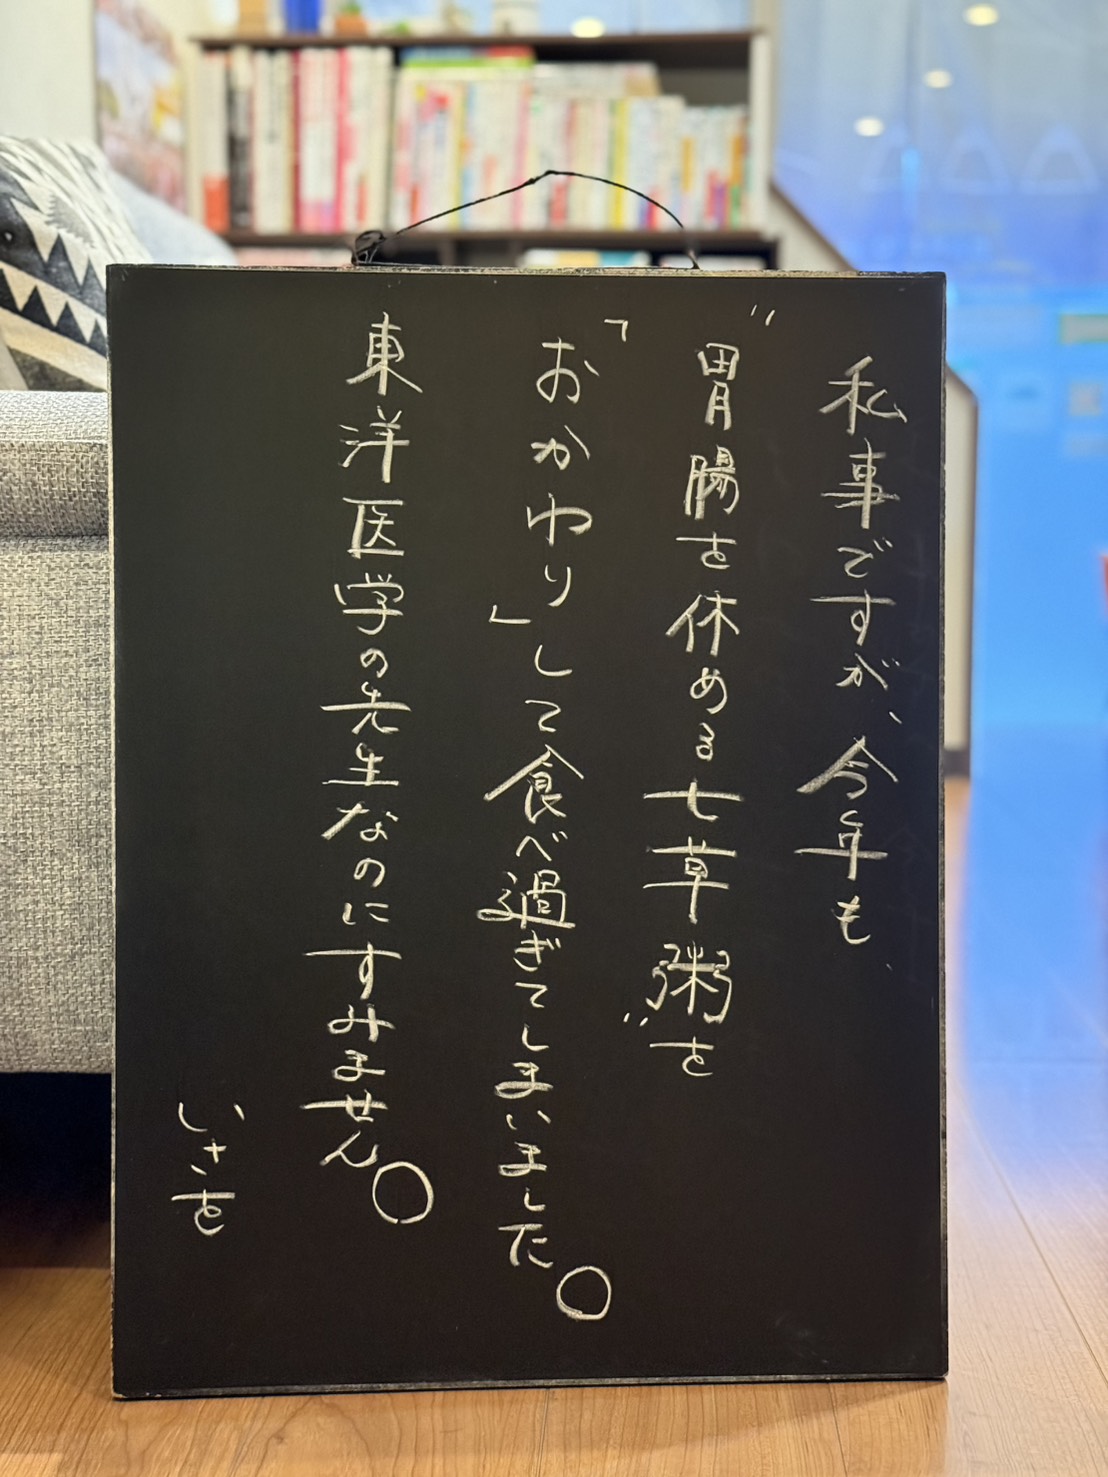 私事ですが、今年も、
"胃腸を休める七草粥"を
「おかわり」して食べ過ぎてしまいました。
東洋医学の先生なのにすみません。
いさを